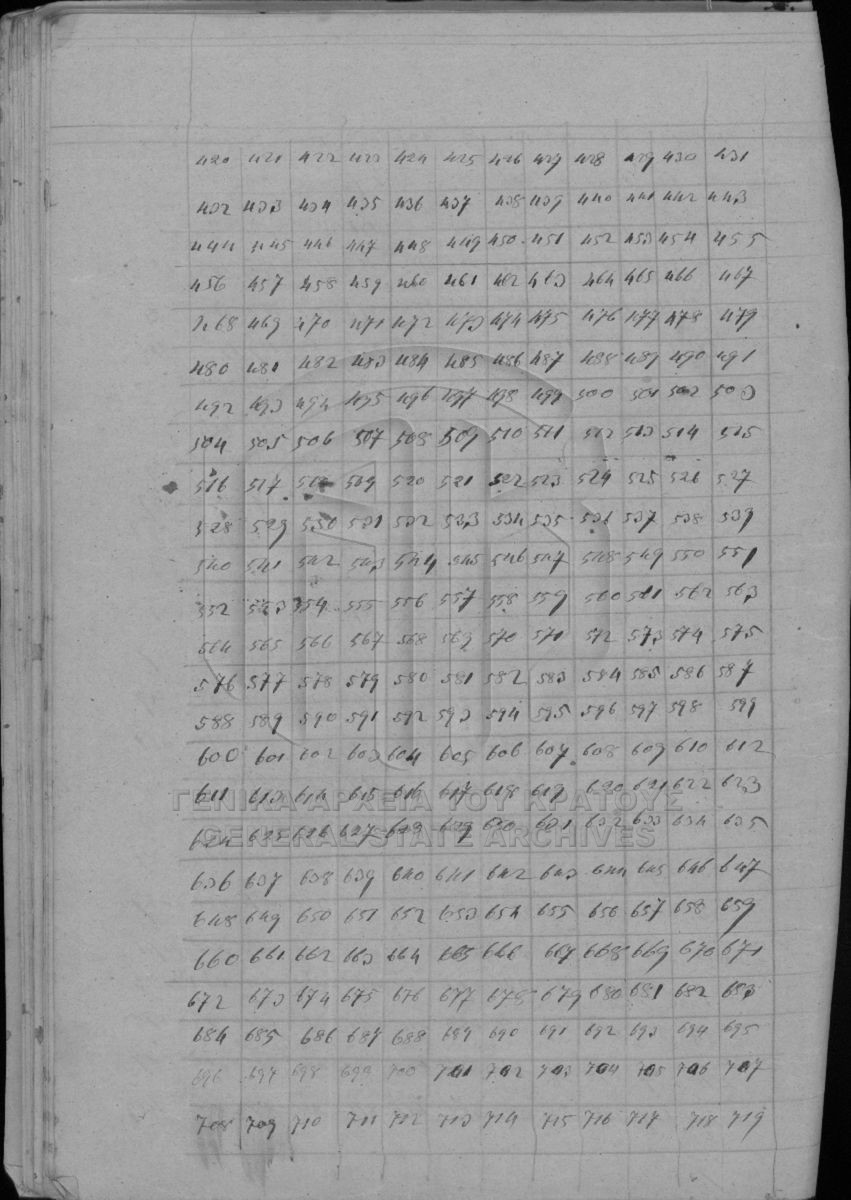 420 421 422 423 424 425 426 427 428 429 430 431
432 433 434 435 436 437 438 439 440 441 442 443
444 445 446 447 448 449 450 451 452 453 454 455
456 457 458 459 460 461 462 463 464 465 466 467
468 469 470 471 472 473 474 475 476 477 478 479
480 481 482 483 484 485 486 487 488 489 490 491
492 493 494 495 496 497 498 499 500 501 502 503
504 505 506 507 508 509 510 511 512 513 514 515
516 517 518 519 520 521 522 523 524 525 526 527
528 529 530 531 532 533 534 535 536 537 538 539
540 541 542 543 544 545 546 547 548 549 550 551
552 553 554 555 556 557 558 559 560 561 562 563
564 565 566 567 568 569 570 571 572 573 574 575
576 577 578 579 580 581 582 583 584 585 586 587
588 589 590 591 592 593 594 595 596 597 598 599
600 601 602 603 604 605 606 607 608 609 610 612
611 613 614 615 616 617 618 619 620 621 622 623
ΓΕΝΙΚΑ ΑΡΧΕΙΑ ΤΟΥ ΚΡΑΤΟΥΣ
624 625 626 627 628 629 630 631 632 633 634 635
GENERAL STATE ARCHIVES
636 637 638 639 640 641 642 643 644 645 646 647
648 649 650 651 652 653 654 655 656 657 658 659
660 661 662 663 664 665 666 667 668 669 670 671
672 673 674 675 676 677 678 679 680 681 682 683
684 685 686 687 688 689 690 691 692 693 694 695
696 697 698 699 700 701 702 703 704 705 706 707
708 709 710 711 712 713 714 715 716 717 718 719